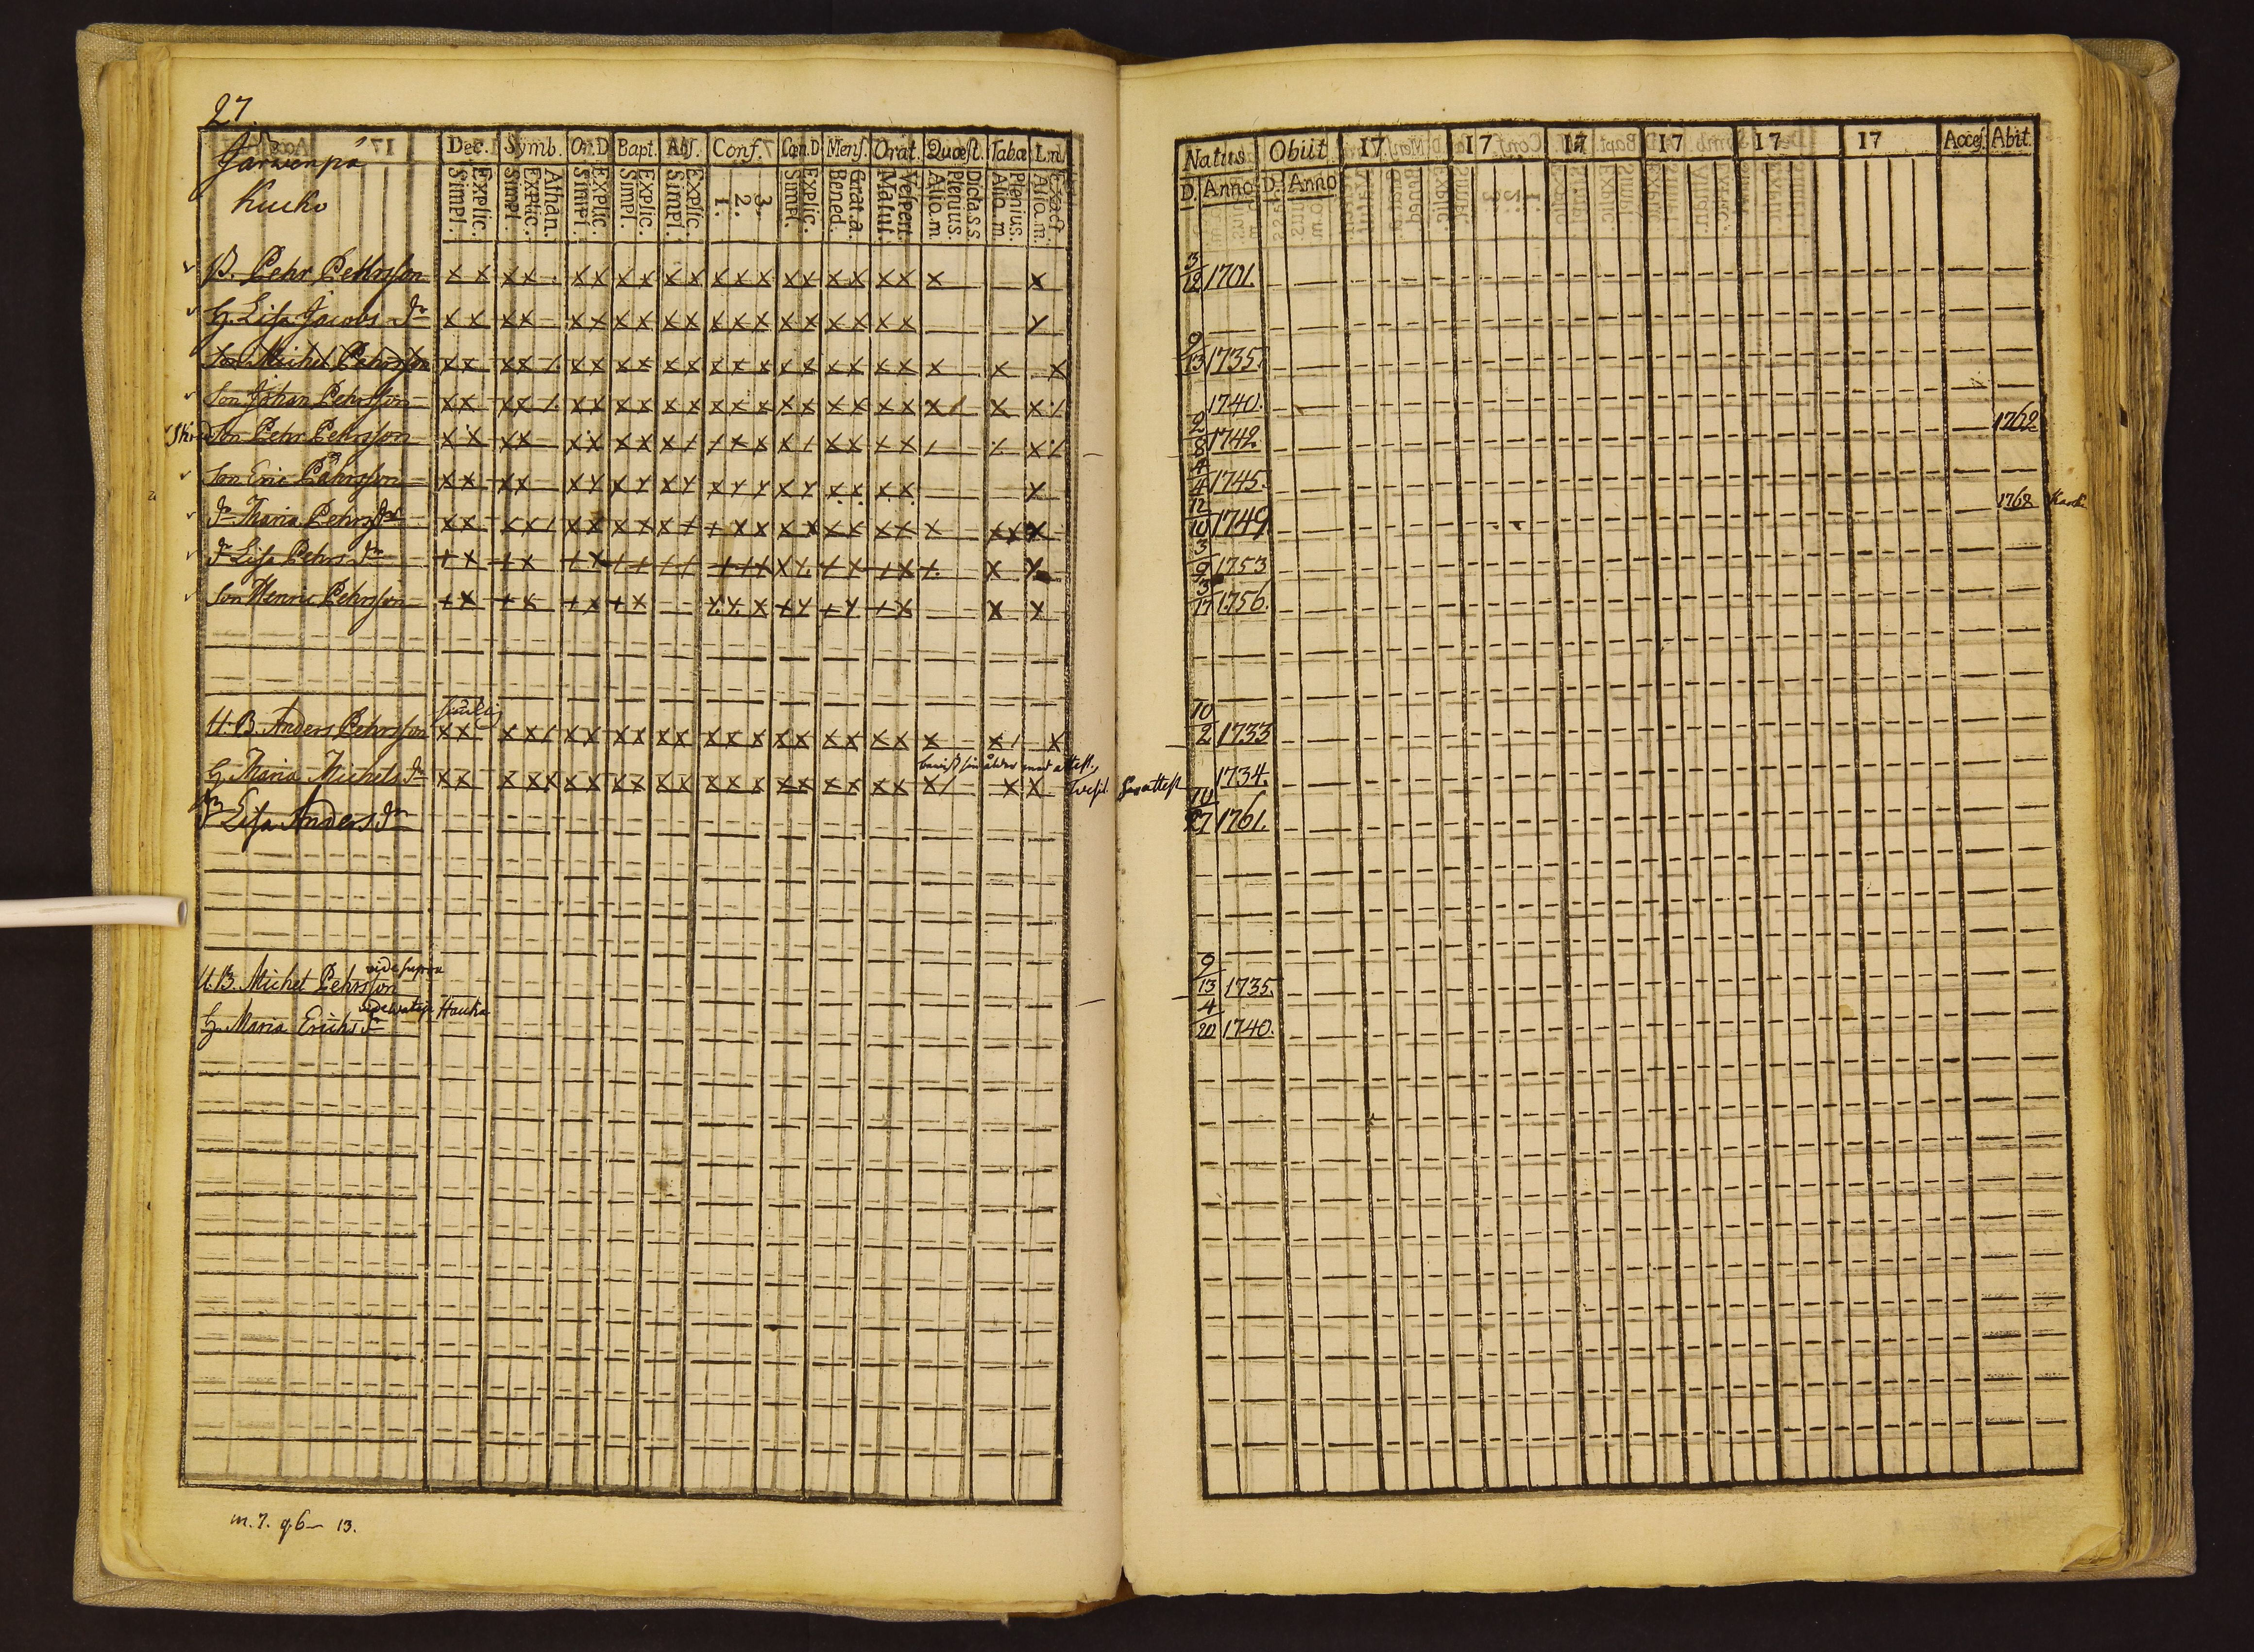 27.
Järwenpä
Kucko
Dec. Symb. Or.D Bapt. Abs. Conf. Cœn.D Mens. Orat. Quæst. Tabœ
Simpl. Explic. Simpl. Explic. Athan. Simpl. Explic. Simpl. Explic. Simpl. Explic. 1. 2. 3. Simpl. Explic. Bened. Grat.a. Matut. Vespert. Alio.m Plenius. Dicta.S.s Alio.m. Plenius. Alio.m.
Natus Obiit 17 17 17 17 17 17 Acces. Abit.
D. Anno D. Anno
B. Pehr Pehrsson x x x x x x x x x x x x x x x x x x x x x 3/12 1701.
H. Lisa Jacobs dr x x x x x x x x x x x x x x x x x x x x
Son Michel Pehrsson x x x x / x x x x x x x x x x x x x x x x x x x 9/13 1735.
Son Johan Pehrsson x x x x / x x x x x x x x x x x x x x x x x / x x / 1740.
Son Pehr Pehrsson x x x x x x x x x / / x x x / x x x x / / x / 2/8 1742. 1762
Son Eric Pehrsson x x x x x x x x x x x x x x x x x x x x 4/4 1745.
dr Maria Pehrs dr x x x x / x x x x x x x x x x x x x x x x x x x 12/10 1749 1768
dr Lisa Pehrs dr x x x x x x x x x x x x x x x x x x x x x x 3/9 1753
Son Henric Pehrsson x x x x x x x x x x x x x x x x x x x 3/17 1756.
U.B. Anders Pehrsson x x x x / x x x x x x x x x x x x x x x x x x / x 10/2 1733
H. Maria Michels dr x x x x x x x x x x x x x x x x x x x x x x / x x 1734.
dr Lisa Anders dr 10/27 1761.
vide supra
U.B. Michel Pehrsson 9/13 1735.
Hauka
H. Maria Erichs dr 4/20 1740.
m. 7. q. 6 — 13.